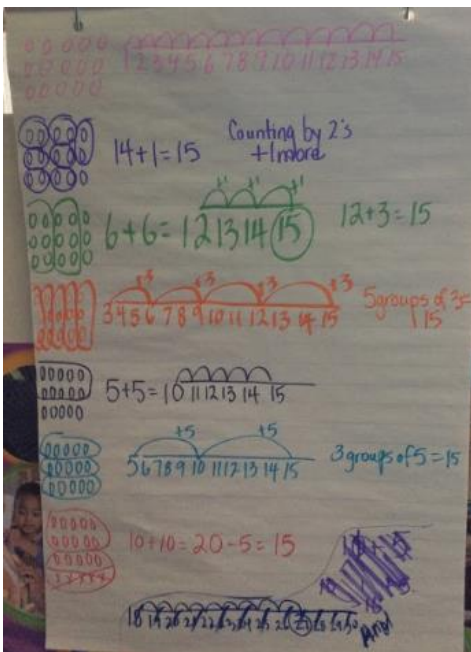 1 2 3 4 5 6 7 8 9 10 11 12 13 14 15
14+1=15
Counting by 2's
+1 more
+1 +1 +1
6+6=12 13 14 15
12+3=15
+3 +3 +3 +3
3 4 5 6 7 8 9 10 11 12 13 14 15
5 groups of 3=
15
5+5=10 11 12 13 14 15
+5 +5
5 6 7 8 9 10 11 12 13 14 15
3 groups of 5=15
10+10=20-5=15
18 19 20 21 22 23 24 25 26 27 28 29 30